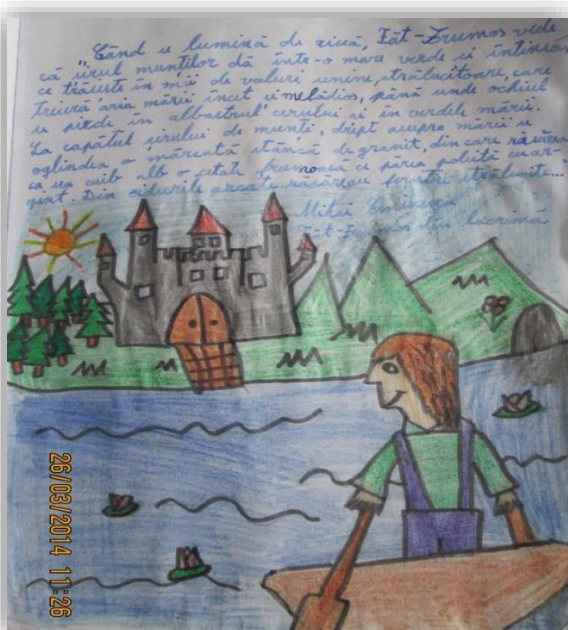 „Când se lumină de ziuă, Făt-Frumos vede
că șirul munților dă într-o mare verde și întinsă,
ce trăiește în mii de valuri senine, strălucitoare, care
treieră aria mării încet și melodios, până unde ochiul
se pierde în albastrul cerului și în verdele mării.
La capătul șirului de munți, drept asupra mării se
oglindea o măreață stâncă de granit, din care răsărea
ca un cuib alb o cetate frumoasă ce părea poleită cu ar-
gint. Din zidurile arcate răsăreau ferestre strălucite...
Mihai Eminescu
Făt-Frumos din lacrimă
26/03/2014 11:26